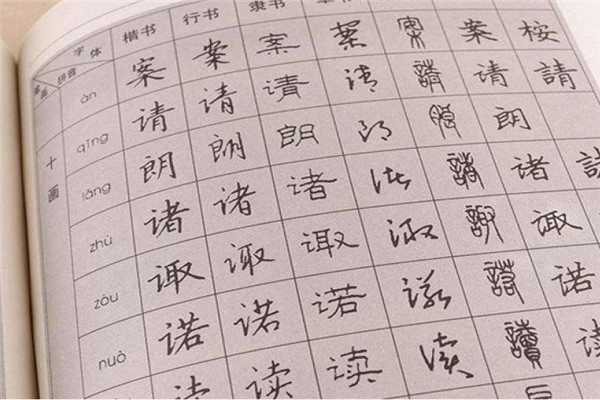 字体 楷书 行书 隶书
笔画 拼音
十画
àn 案 案 案 案 案 案 桉
qǐng 请 请 请 请 請 请 請
lǎng 朗 朗 朗 朗 朗 朗
zhū 诸 诸 诸 诸 諸 诸
zōu 诹 诹 诹 诹 諏 诹
nuò 诺 诺 诺 诺 諾 诺
读 读 读 讀 读